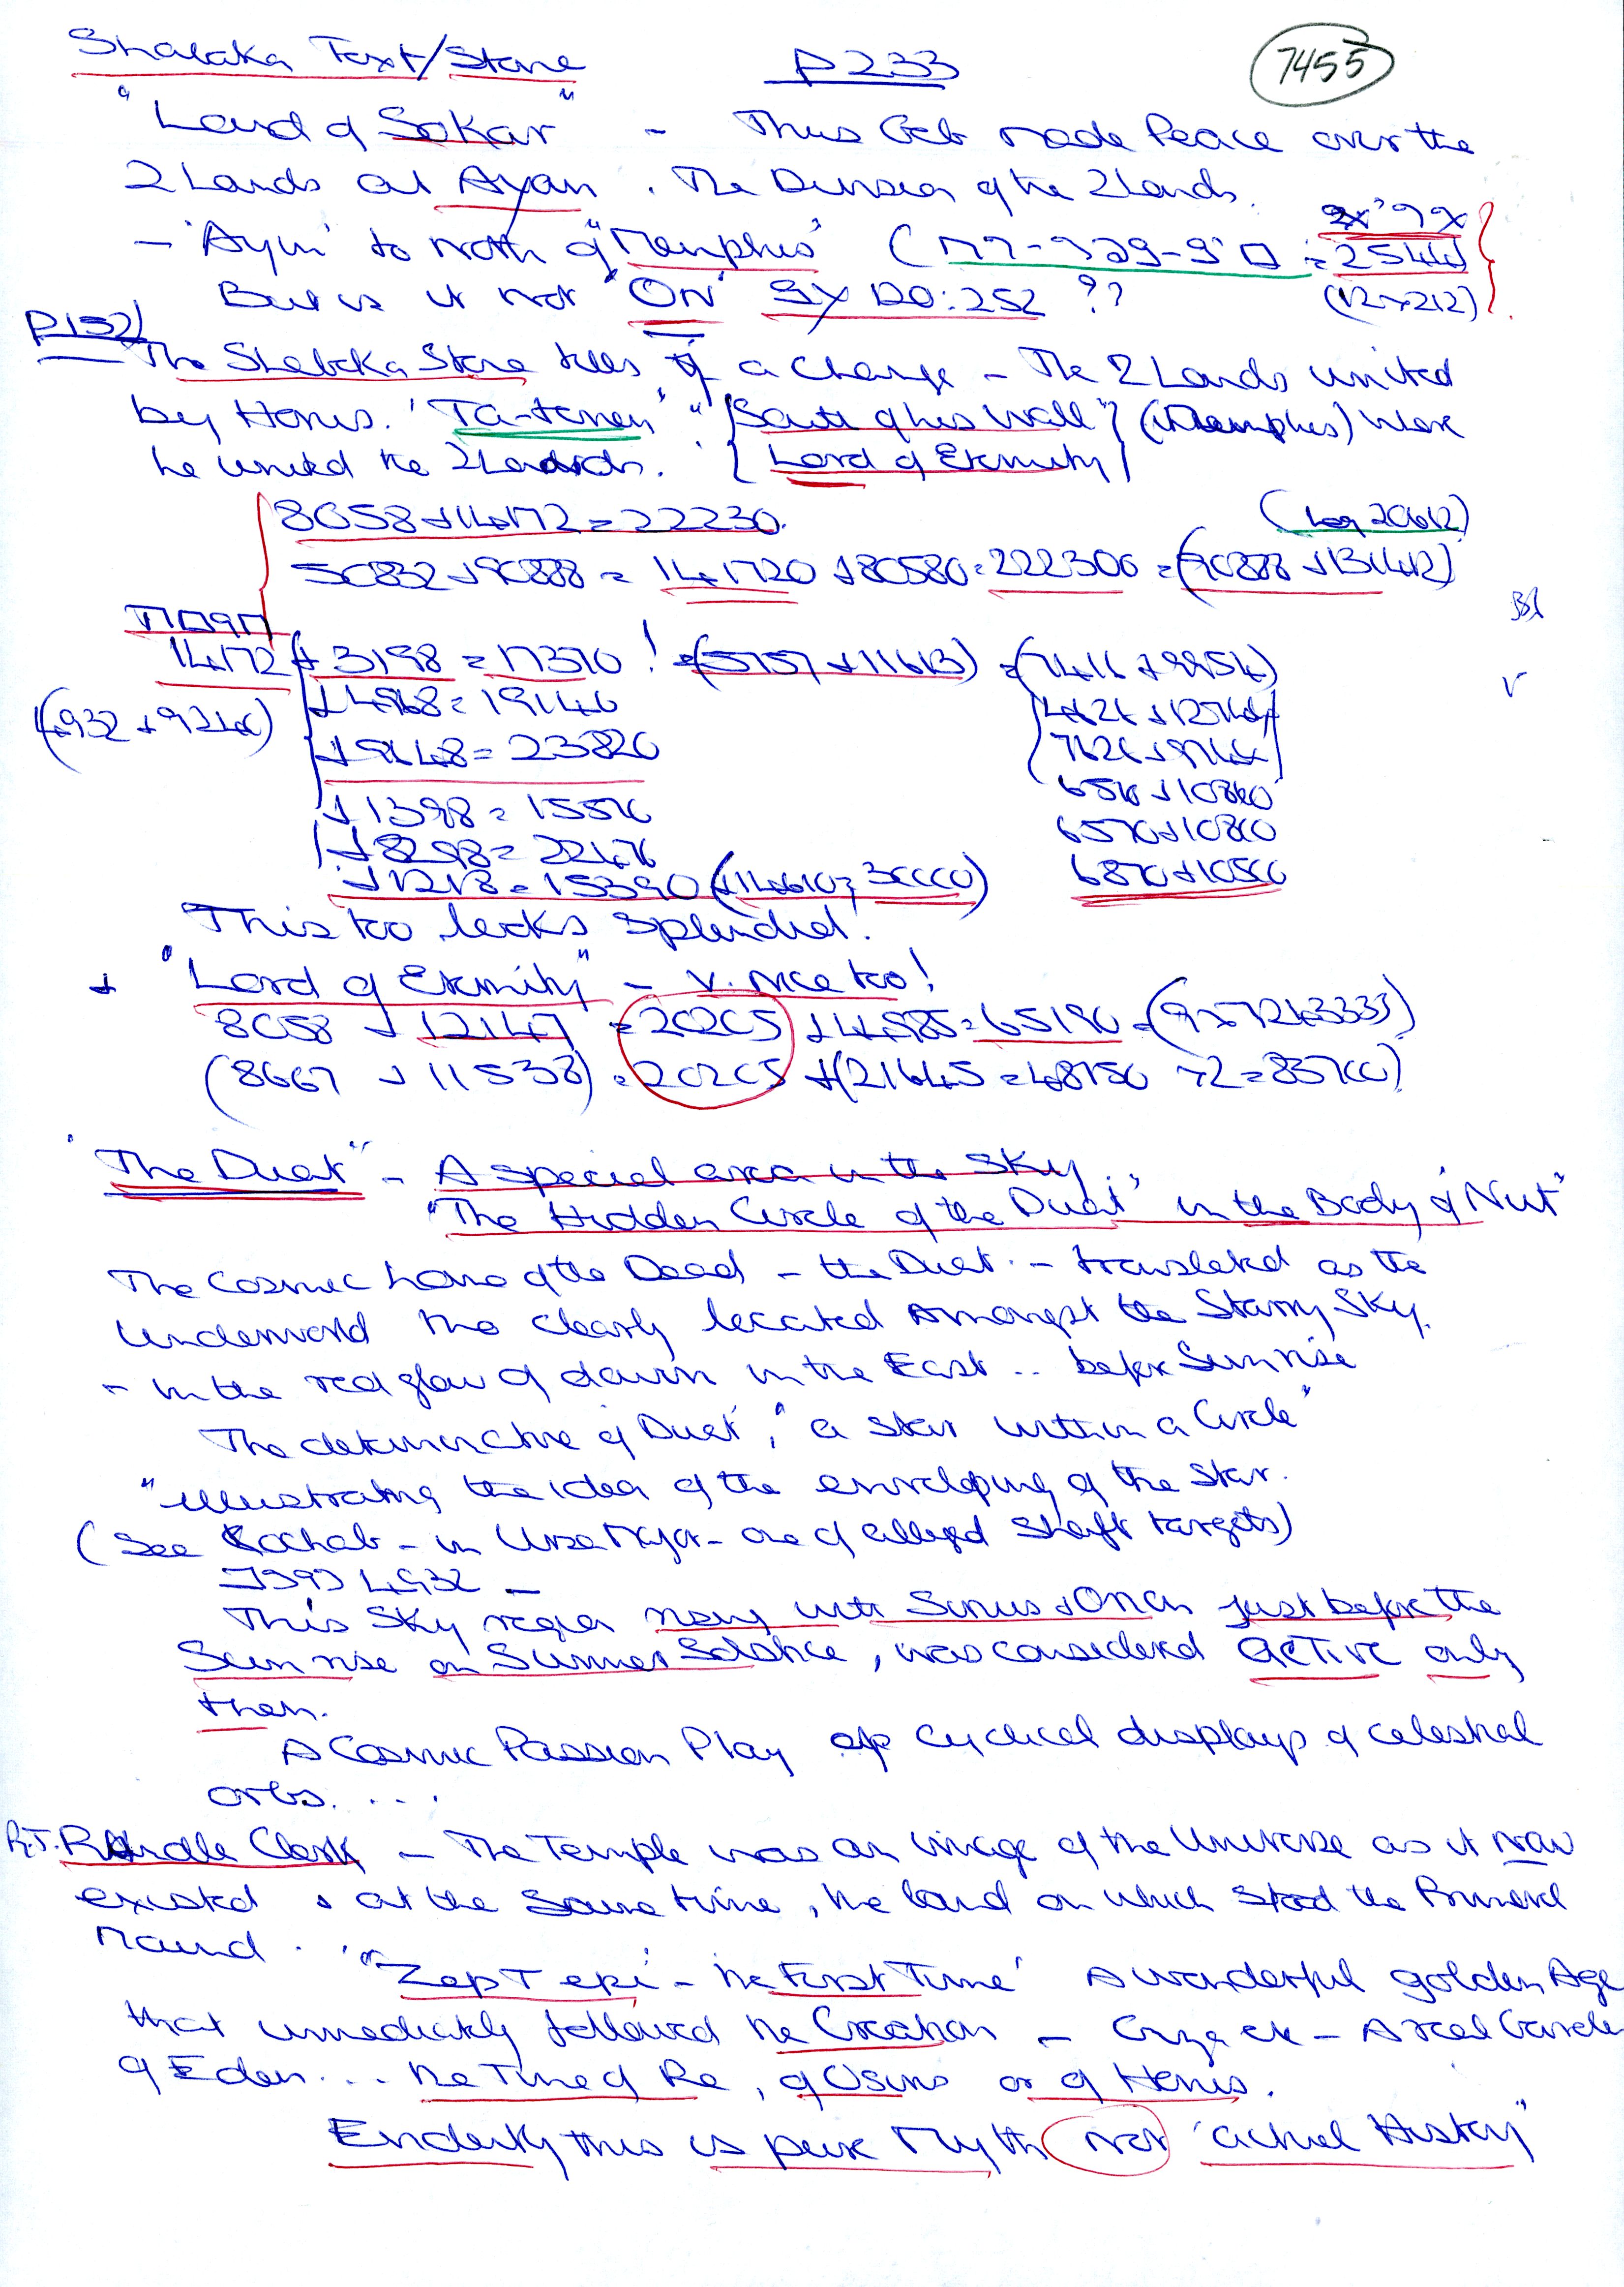 Shabaka Text/Stone P233 7455
"Land of Sokar" - Thus Geb made Peace over the
2 Lands at Ayan. The Division of the 2 Lands.
- 'Ayin' to north of "Memphis" ( = 2544)
But is it not 'ON' : 252 ?? (12x212)
P132
The Shabaka Stone tells of a change - The 2 Lands united
by Horus. 'Ta-tenen' "South of his Wall" (Memphis) Were
he united the 2 Lands. Lord of Eternity
8058+14172=22230. (Leg 20612)
50832+90888 = 141720 +80580=222300 = (90888+131412)
14172 + 3198 = 17370 ! = (5757+11613) = (7416+9954)
(4932+9240) +4968=19140
+9648=23820
+1398=15570 6510+10860
+8298=22470 6570+10800
+1218=15390 (+14610; 30000) 6870+10500
This too looks splendid!
+ "Lord of Eternity" - v. nice too!
8058 + 12147 =20205 +44985=65190 =
(8667 + 11538) =20205 +
"The Duat" - A special area in the Sky.
"The Hidden Circle of the Duat" in the Body of Nut"
The Cosmic home of the Dead - the Duat - translated as the
Underworld tho clearly located amongst the Starry Sky.
- In the red glow of dawn in the East .. before Sunrise
The determinative of Duat, "a star within a Circle"
"illustrating the idea of the enveloping of the star.
(See Kochab - in Ursa Major - one of alleged shaft targets)
4932 -
This Sky region rising with Sirius & Orion just before the
Sun rise on Summer Solstice, was considered ACTIVE only
then.
A Cosmic Passion Play of cyclical displays of celestial
orbs. ...
R.T. Rundle Clark - The Temple was an image of the Universe as it now
existed & at the same time, the land on which stood the Primeval
Mound. "Zep Tepi - the First Time' A wonderful golden Age
that immediately followed the Creation - - A real Garden
of Eden... the Time of Re, of Osiris or of Horus.
Evidently this is pure Myth not 'actual History"